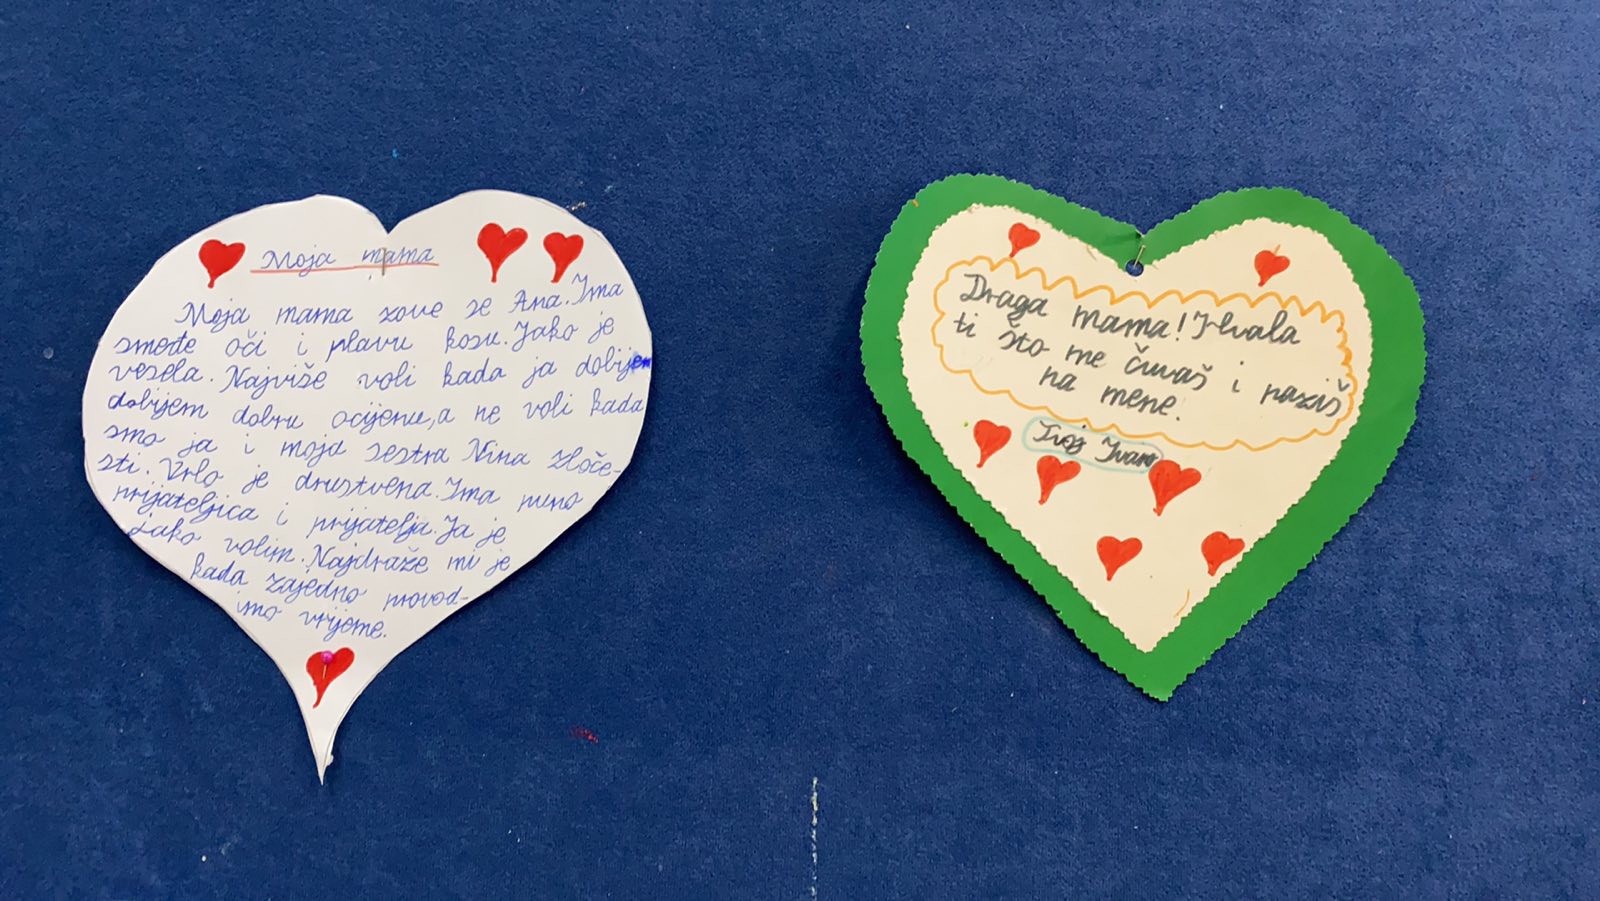 Moja mama
Moja mama zove se Ana. Ima
smeđe oči i plavu kosu. Jako je
vesela. Najviše voli kada ja dobijem
dobijem dobru ocijenu, a ne voli kada
smo ja i moja sestra Nina zloče-
sti. Vrlo je druztvena. Ima puno
prijateljica i prijatelja. Ja je
jako volim. Najdraže mi je
kada zajedno provod-
imo vrijeme.
Draga mama! Hvala
ti što me čuvaš i paziš
na mene.
Tvoj Ivano